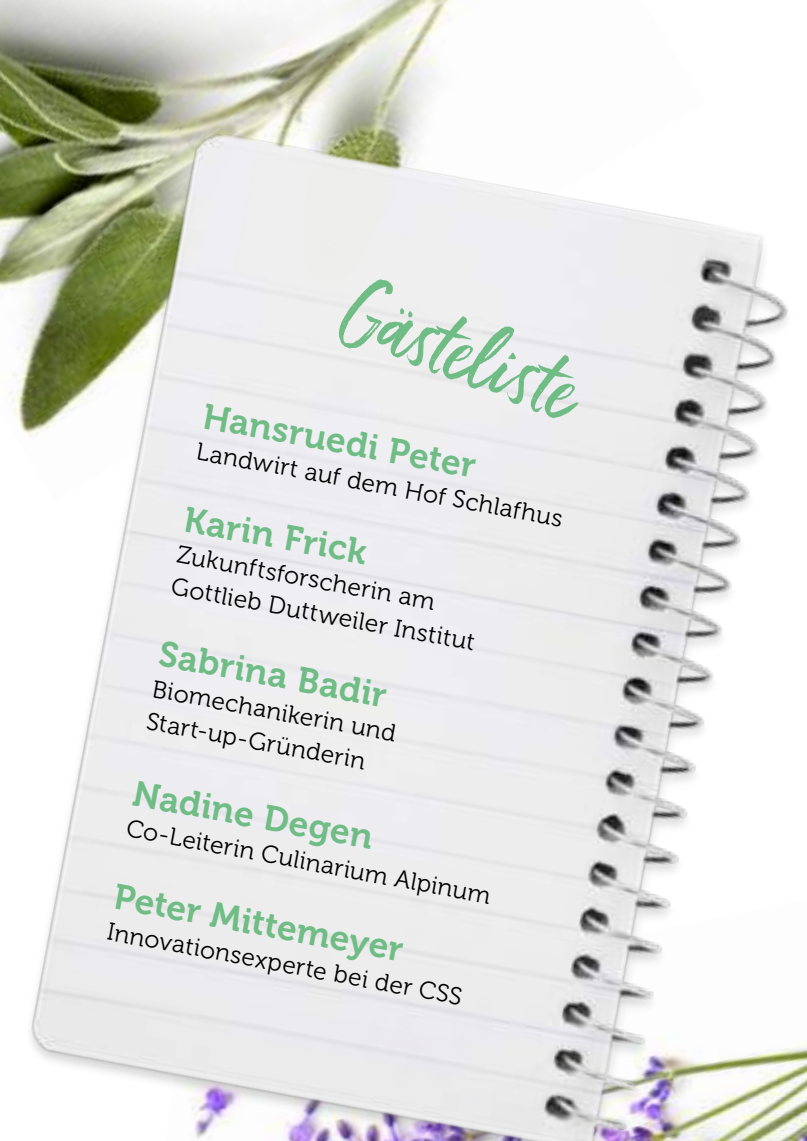 Gästeliste
Hansruedi Peter
Landwirt auf dem Hof Schlafhus
Karin Frick
Zukunftsforscherin am
Gottlieb Duttweiler Institut
Sabrina Badir
Biomechanikerin und
Start-up-Gründerin
Nadine Degen
Co-Leiterin Culinarium Alpinum
Peter Mittemeyer
Innovationsexperte bei der CSS